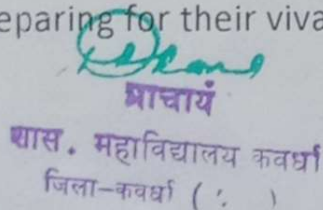 eparing for their viva
प्राचार्य
शास. महाविद्यालय कवर्धा
जिला-कवर्धा ( )